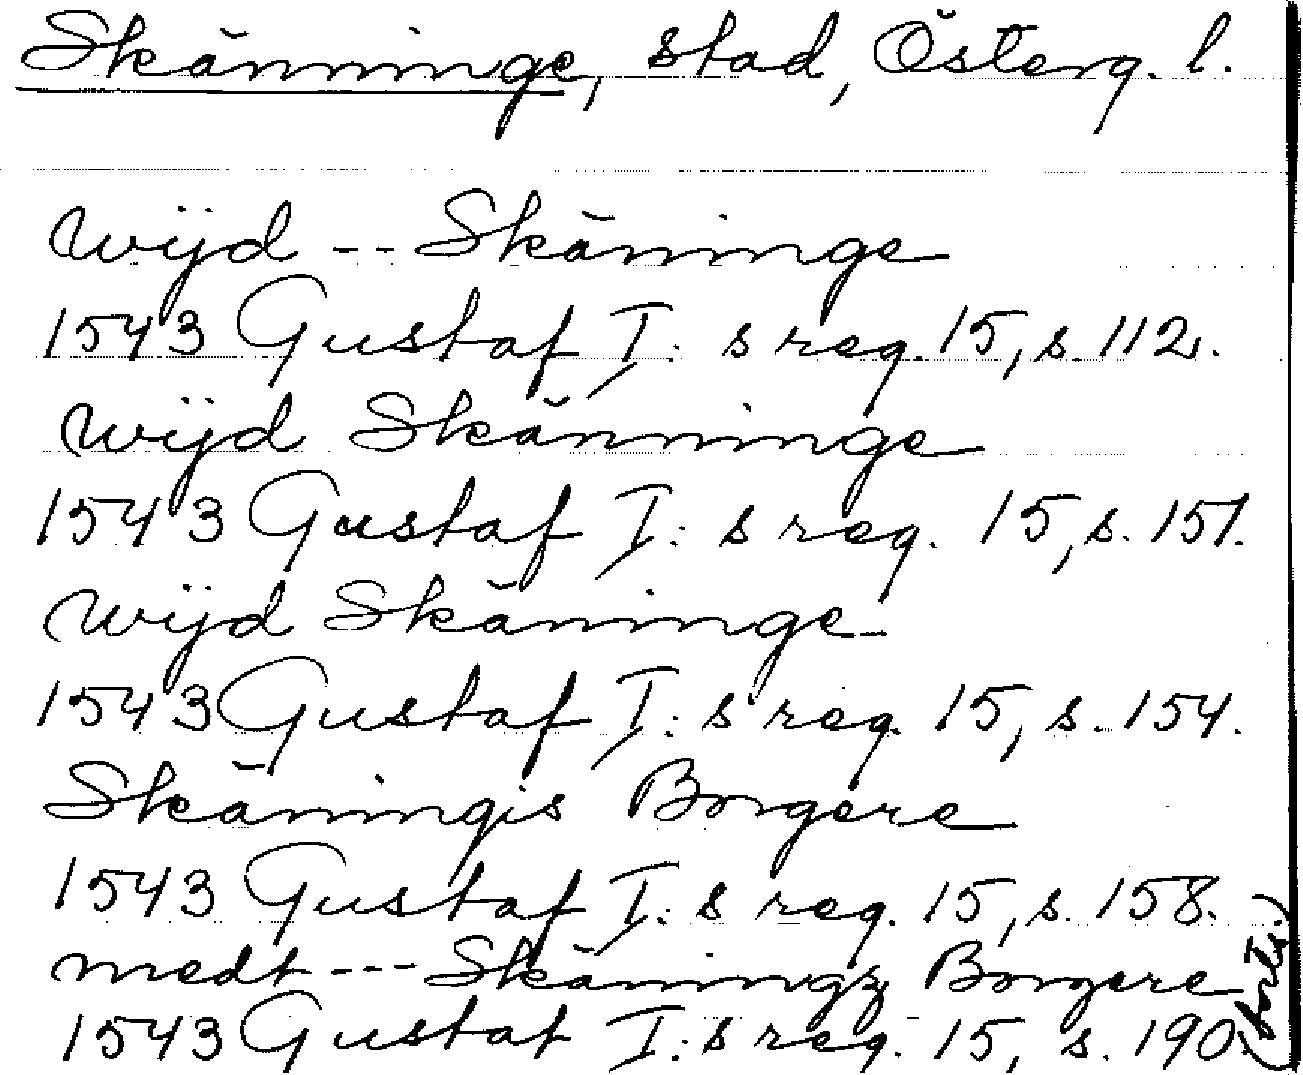 Skänninge, stad, Österg. l.
wijd -- Skäninge
1543 Gustaf I:s reg. 15, s. 112.
wijd Skänninge
1543 Gustaf I:s reg. 15, s. 151.
wijd Skäninge
1543 Gustaf I:s reg. 15, s. 154.
Skäningis Borgere
1543 Gustaf I:s reg. 15, s. 158.
medt --- Skäningz Borgere
1543 Gustaf I:s reg. 15, s. 190.
(forts.)